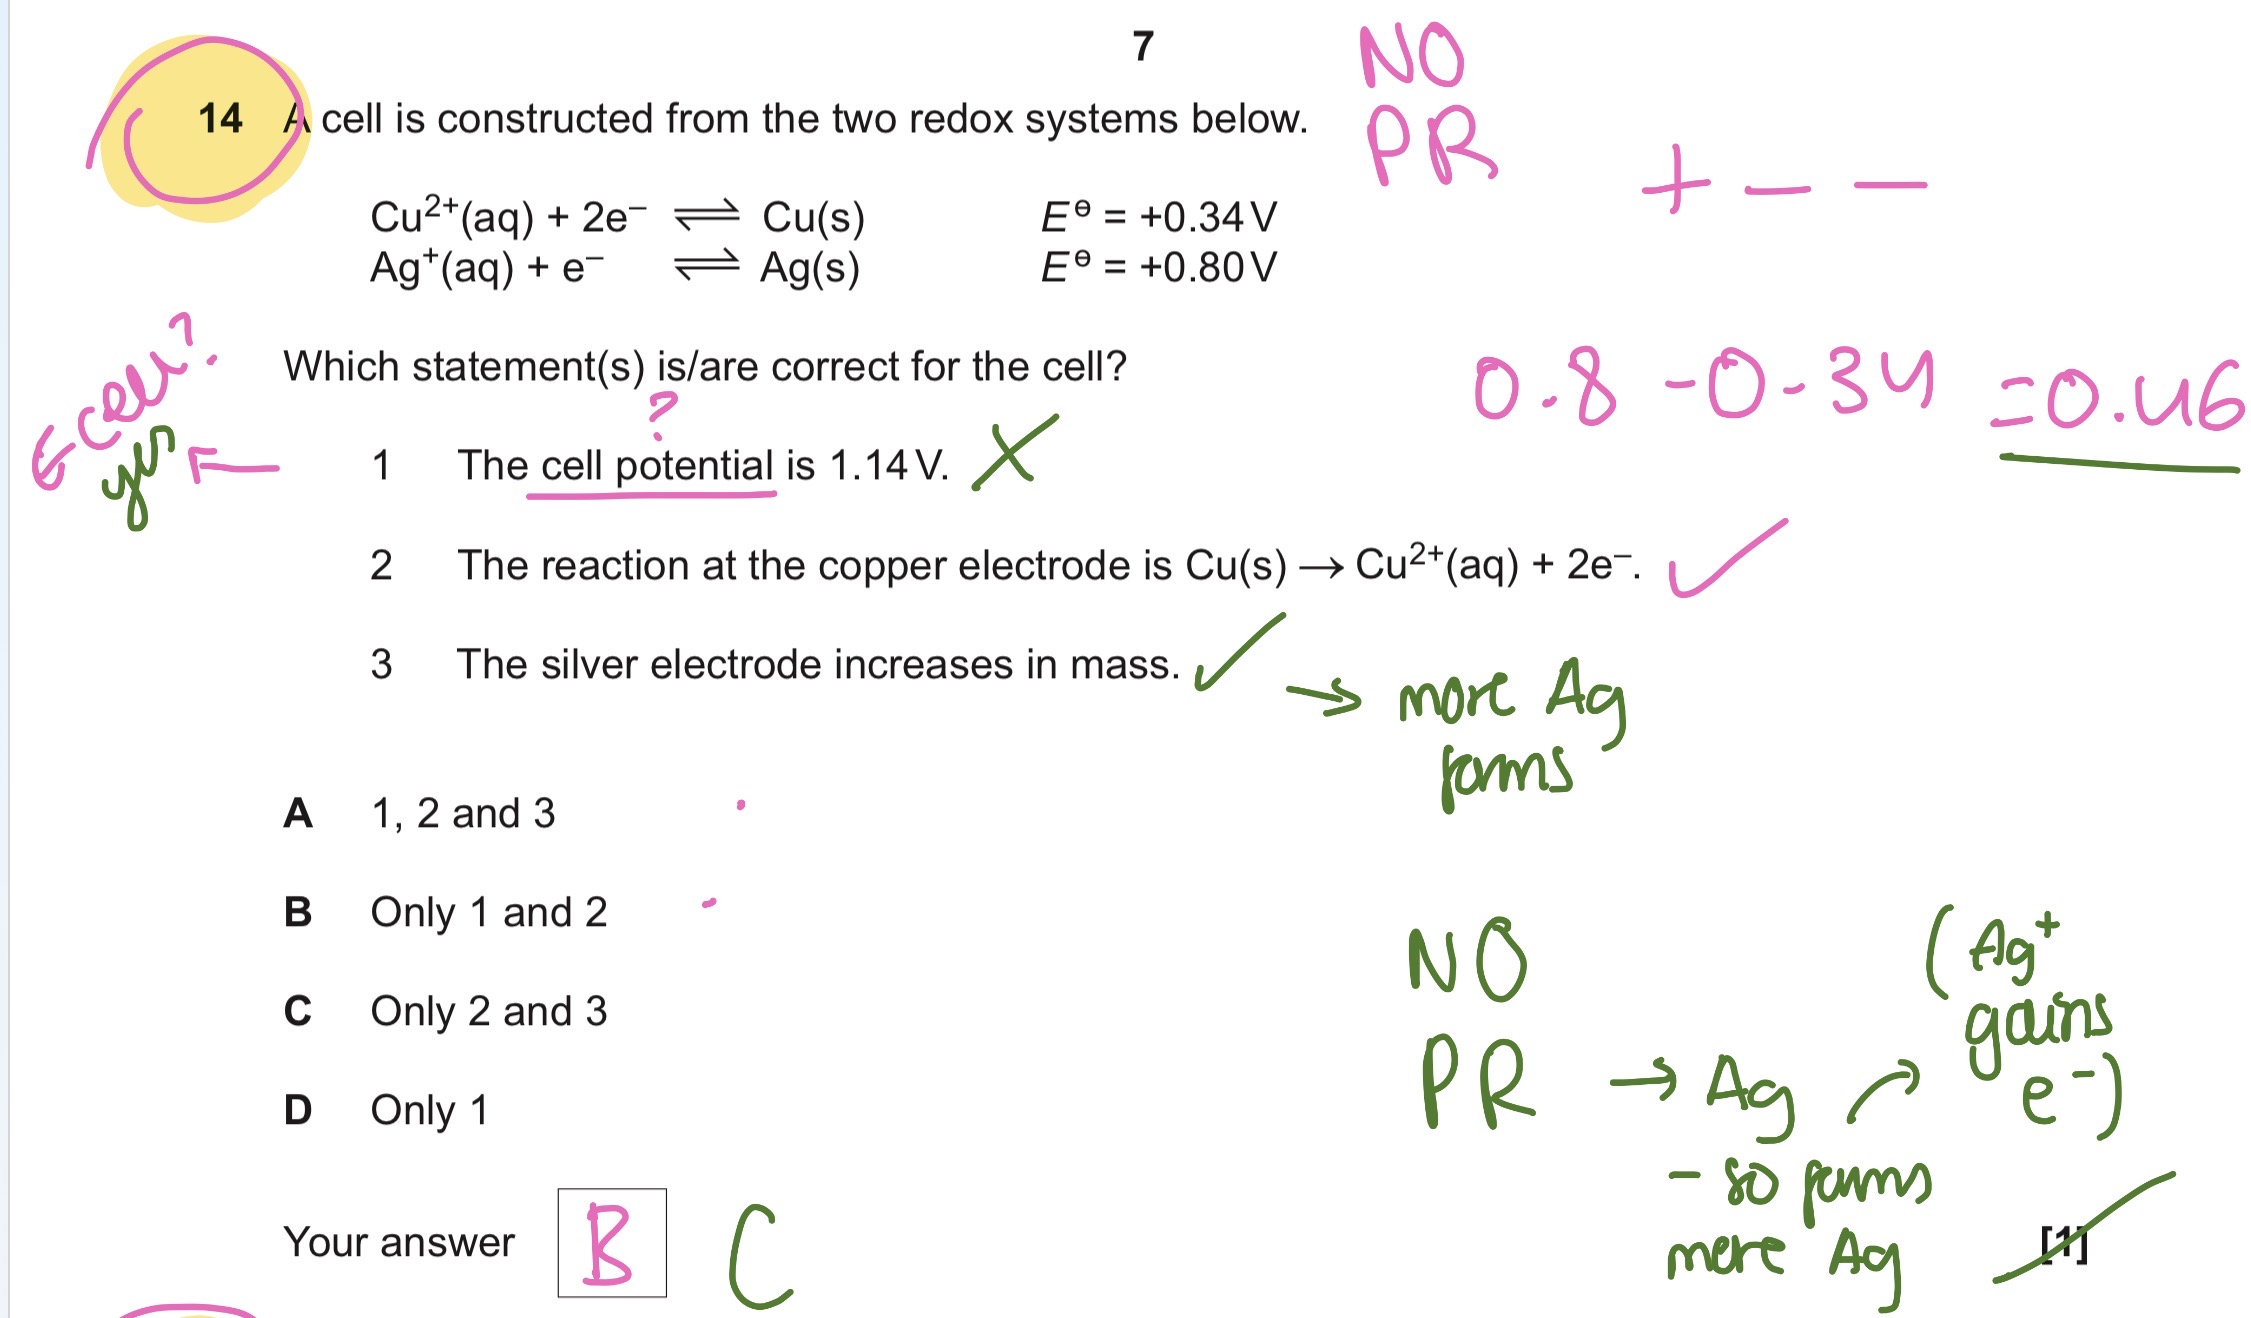 7
NO
PR
+ - -
14 A cell is constructed from the two redox systems below.
Cu²⁺(aq) + 2e⁻ ⇌ Cu(s) E⦵ = +0.34 V
Ag⁺(aq) + e⁻ ⇌ Ag(s) E⦵ = +0.80 V
Which statement(s) is/are correct for the cell?
0.8 - 0.34 = 0.46
E cell?
yes
?
1 The cell potential is 1.14 V. ✗
2 The reaction at the copper electrode is Cu(s) → Cu²⁺(aq) + 2e⁻. ✓
3 The silver electrode increases in mass. ✓
→ more Ag
forms
A 1, 2 and 3
B Only 1 and 2
C Only 2 and 3
D Only 1
NO
PR → Ag
(Ag⁺
gains
e⁻)
- so forms
more Ag
Your answer B C
[1]